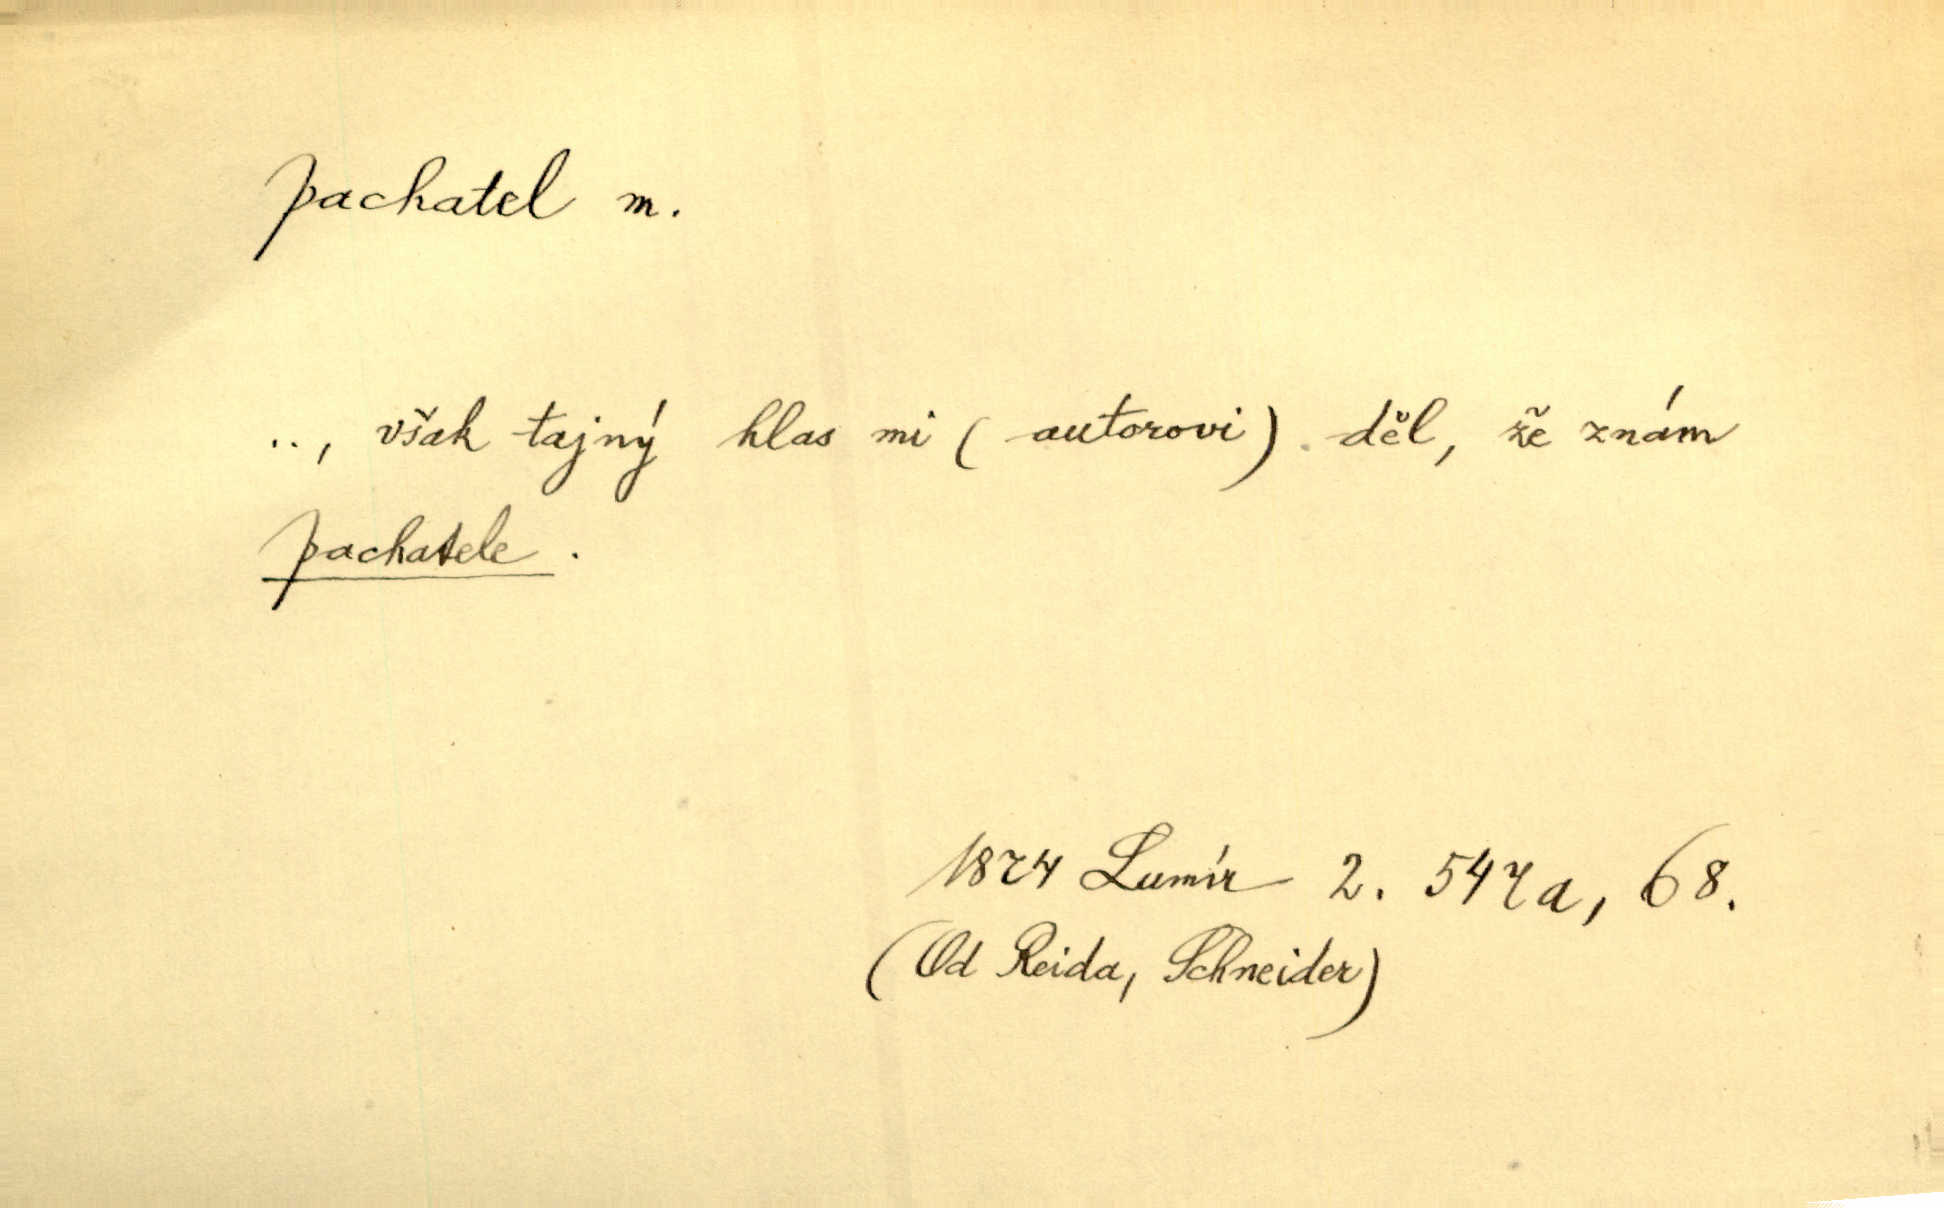 pachatel m.
.., však tajný hlas mi (autorovi) děl, že znám
pachatele.
1874 Lumír 2. 547a, 68.
(Od Reida, Schneider)